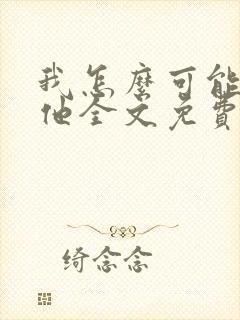 我怎麼可能
他全文免費
绮念念